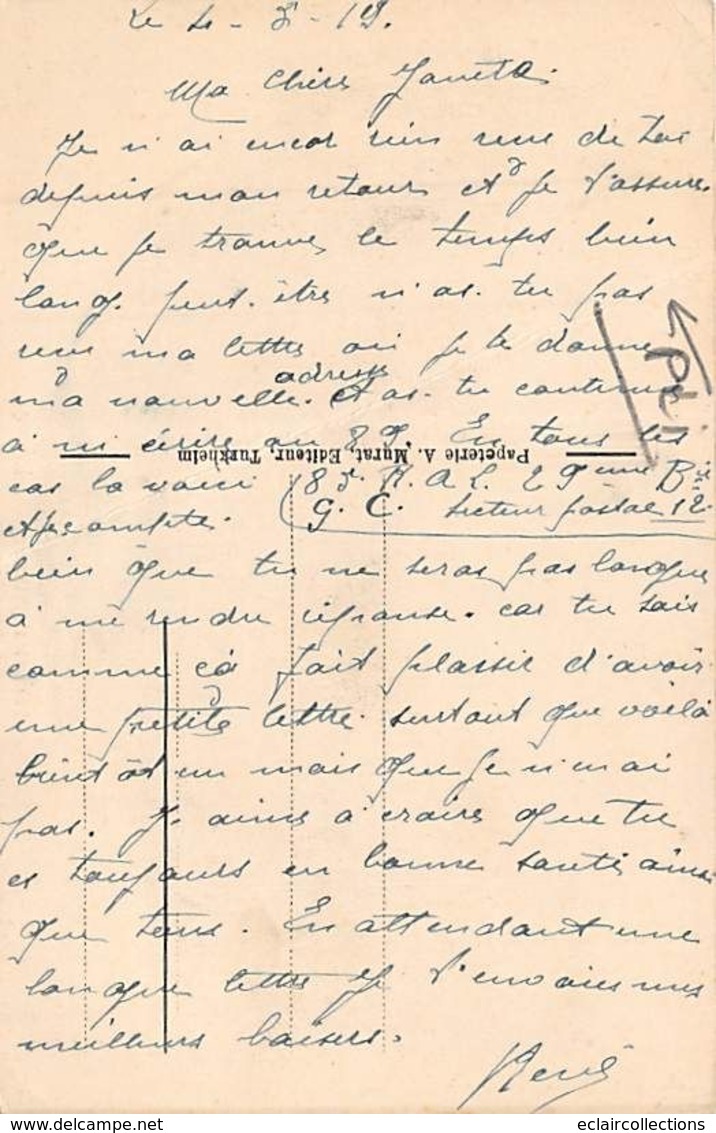 Le 4 - 3 - 19.
Ma Chère Janeta.
Je n'ai encor rien recu de toi
depuis mon retour. et Je t'assure
que je trouve le temps bien
long. peut-être n'as-tu pas
recu ma lettre ou je te donne
ma nouvelle adresse. et as-tu continue
à m'écrire au 89. En tous les
Papeterie A. Murat, Editeur, Turkheim
cas la voici 83. R. A. L. 29ème Bie
G. C. Secteur postal 12.
et je compte
bien que tu ne seras pas longue
à me rendre réponse. car tu sais
comme çà fait plassir d'avoir
une petite lettre. surtout que voilà
bientôt un mois que je n'en ai
pas. J. aime à croire que tu
es toujours en bonne santé ainsi
que tous. En attendant une
longue lettre Je t'envoies mes
meilleurs baisers.
René
Pli
eclaircollections